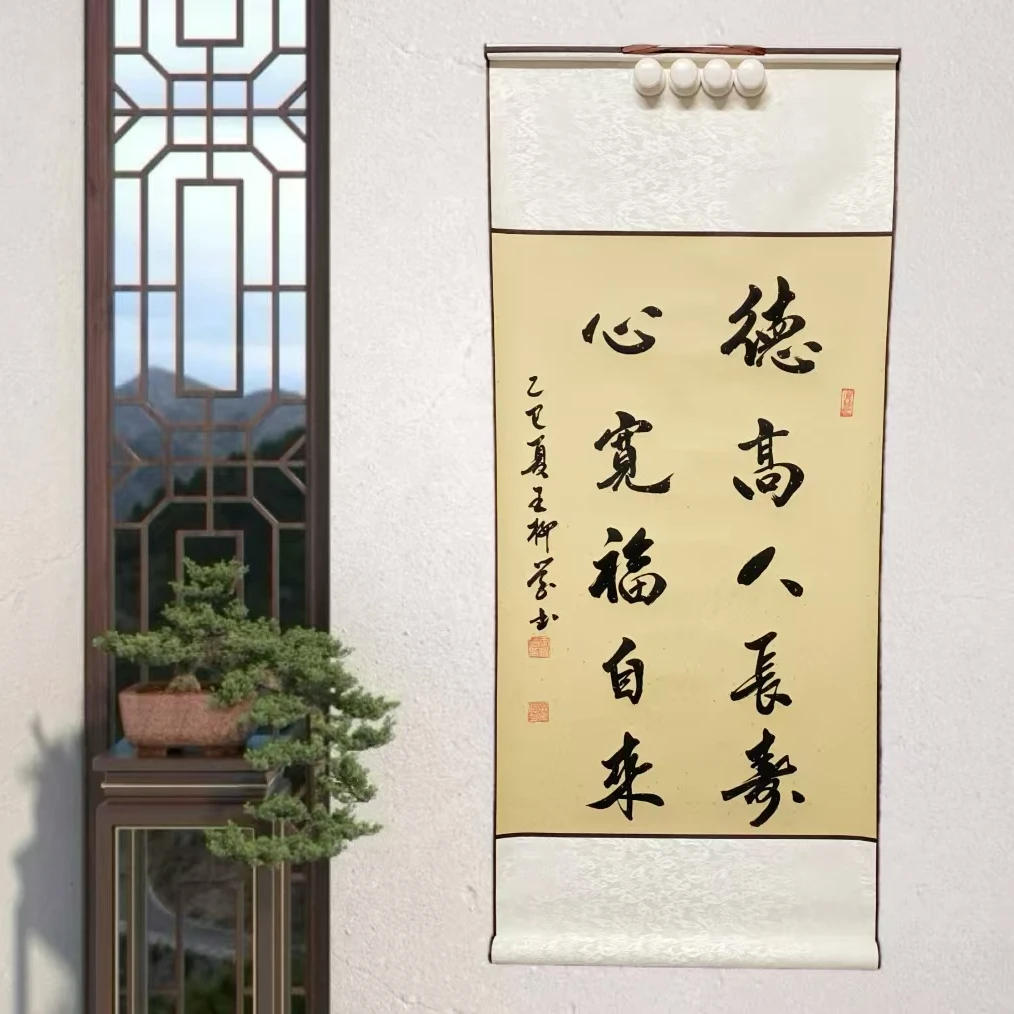 德高人長壽
心寬福自來
乙巳夏王柳学书